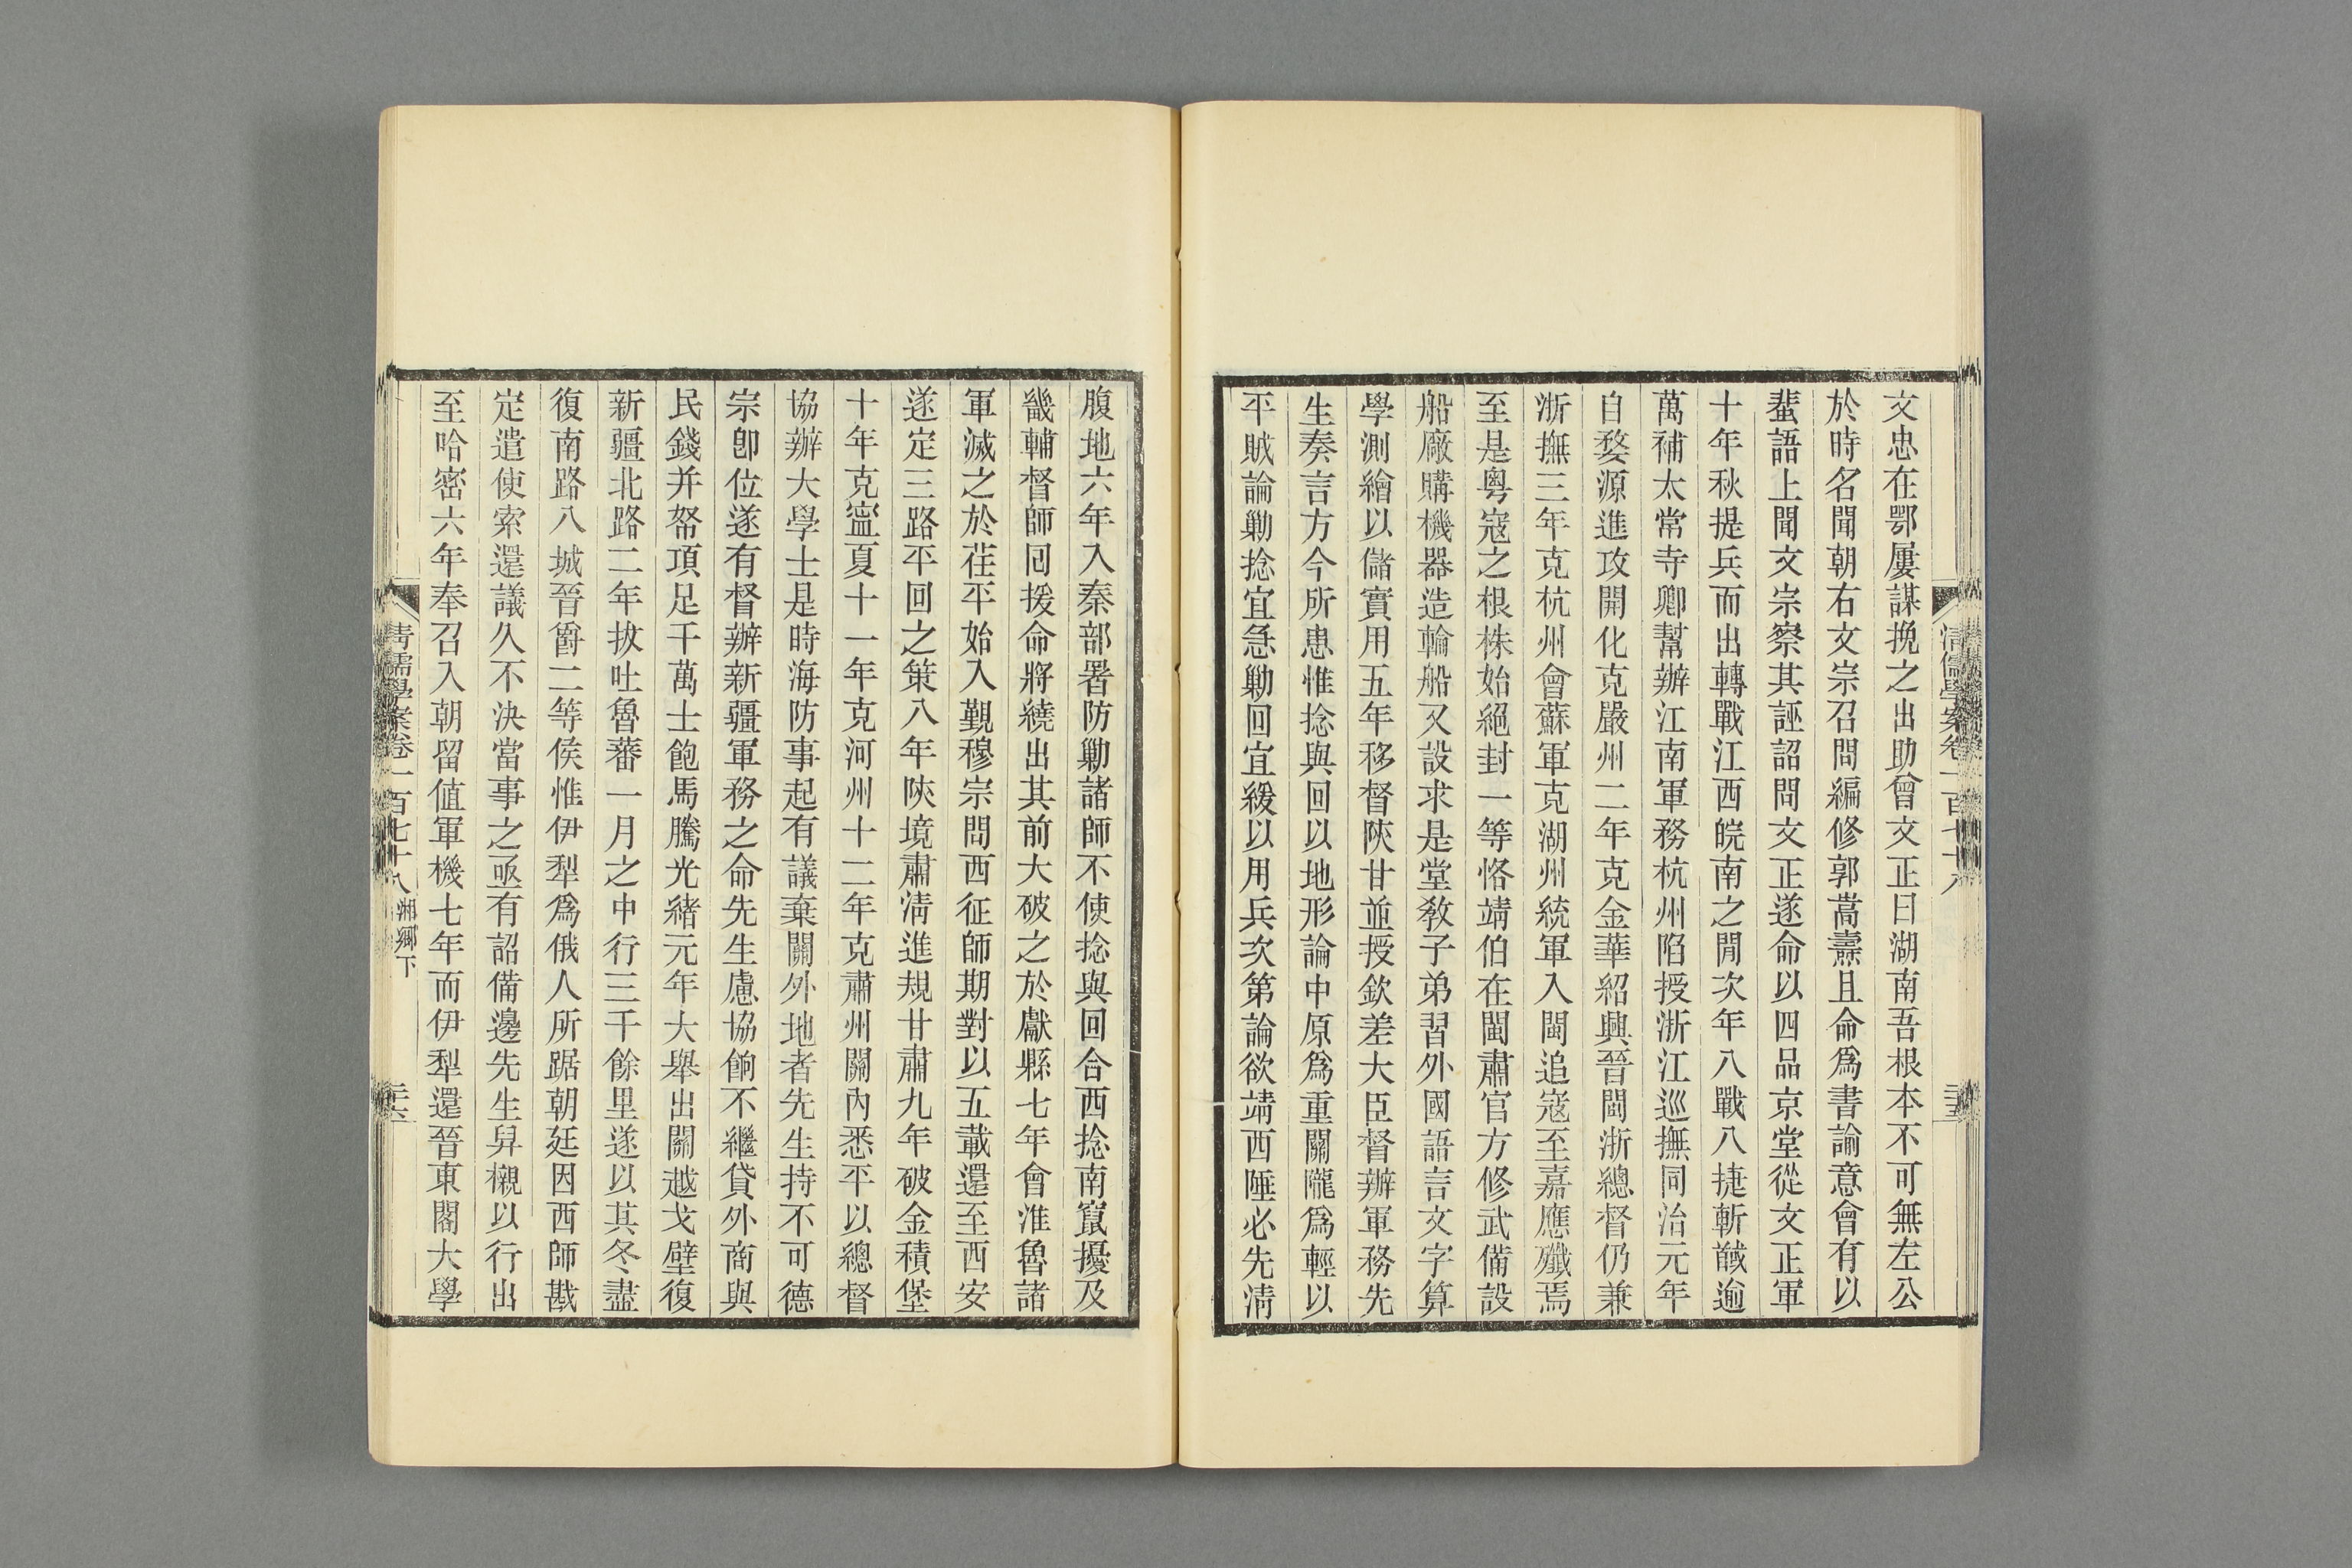 文忠在鄂屢謀挽之出助曾文正曰湖南吾根本不可無左公
於時名聞朝右文宗召問編修郭嵩燾且命爲書諭意會有以
蜚語上聞文宗察其誣詔問文正遂命以四品京堂從文正軍
十年秋提兵而出轉戰江西皖南之閒次年八戰八捷斬馘逾
萬補太常寺卿幫辦江南軍務杭州陷授浙江巡撫同治元年
自婺源進攻開化克嚴州二年克金華紹興晉閩浙總督仍兼
浙撫三年克杭州會蘇軍克湖州統軍入閩追寇至嘉應殲焉
至是粵寇之根株始絕封一等恪靖伯在閩肅官方修武備設
船廠購機器造輪船又設求是堂敎子弟習外國語言文字算
學測繪以儲實用五年移督陝甘並授欽差大臣督辦軍務先
生奏言方今所患惟捻與回以地形論中原爲重關隴爲輕以
平賊論勦捻宜急勦回宜緩以用兵次第論欲靖西陲必先淸
腹地六年入秦部署防勦諸師不使捻與回合西捻南竄擾及
畿輔督師回援命將繞出其前大破之於獻縣七年會淮魯諸
軍滅之於茌平始入覲穆宗問西征師期對以五載還至西安
遂定三路平回之策八年陝境肅淸進規甘肅九年破金積堡
十年克寍夏十一年克河州十二年克肅州關內悉平以總督
協辦大學士是時海防事起有議棄關外地者先生持不可德
宗卽位遂有督辦新疆軍務之命先生慮協餉不繼貸外商與
民錢并帑項足千萬士飽馬騰光緒元年大舉出關越戈壁復
新疆北路二年拔吐魯蕃一月之中行三千餘里遂以其冬盡
復南路八城晉爵二等侯惟伊犁爲俄人所踞朝廷因西師戡
定遣使索還議久不決當事之亟有詔備邊先生舁櫬以行出
至哈密六年奉召入朝留值軍機七年而伊犁還晉東閣大學
淸儒學案卷一百七十八 湘鄉下 二十六